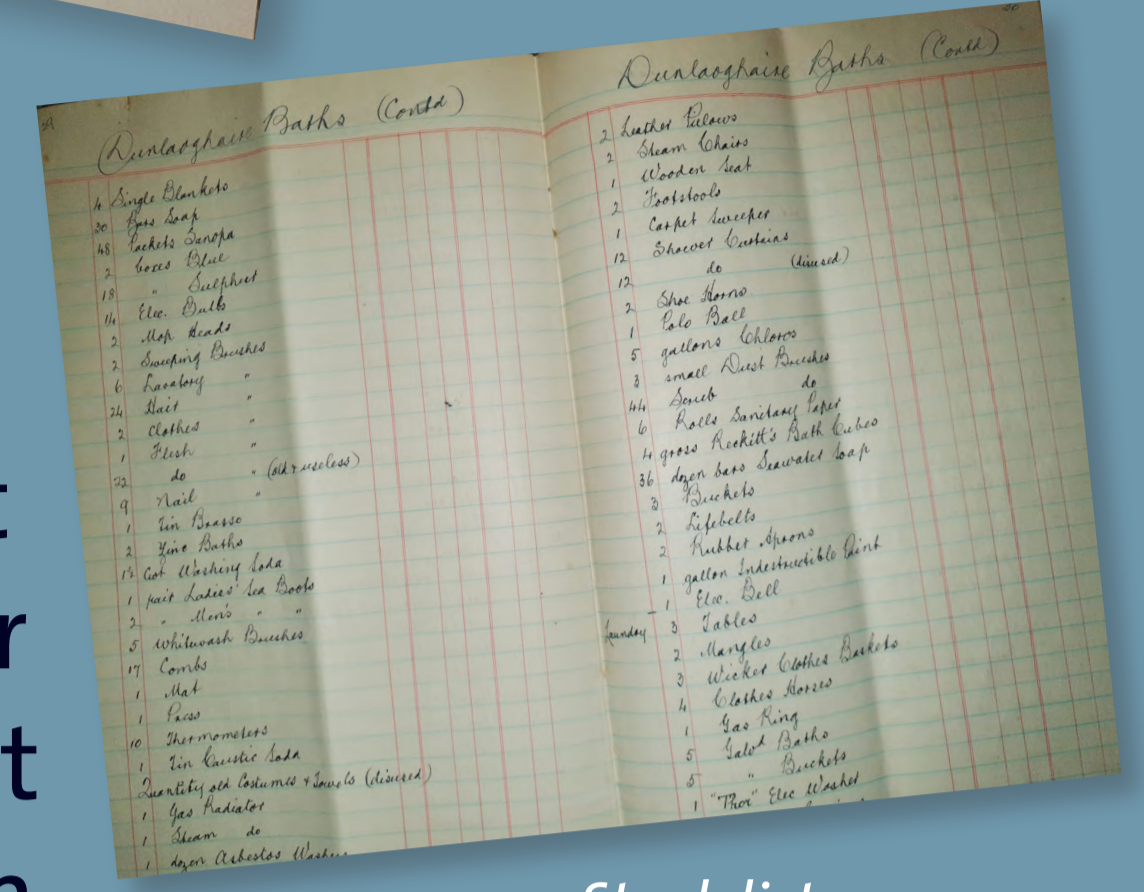 Dunlaoghaire Baths (Contd)
4 Single Blankets
30 Bars Soap
48 Packets Sanopa
2 boxes Blue
18 " Sulphur
14 Elec. Bulbs
2 Mop Heads
2 Sweeping Brushes
6 Lavatory "
24 Hair "
2 Clothes "
1 Flesh "
22 do " (old & useless)
9 Nail "
1 Tin Brasso
2 Zinc Baths
Cwt Washing Soda
1 pair Ladies' Sea Boots
2 " Men's " "
5 Whitewash Brushes
17 Combs
1 Mat
1 Press
10 Thermometers
1 Tin Caustic Soda
Quantity old Costumes & Towels (disused)
1 Gas Radiator
1 Steam do
1 dozen Asbestos Washers
Dunlaoghaire Baths (Contd)
2 Leather Pillows
2 Steam Chairs
1 Wooden Seat
2 Footstools
1 Carpet Sweeper
12 Shower Curtains
12 do (disused)
2 Shoe Horns
1 Polo Ball
5 gallons Chloros
3 small Dust Brushes
44 Scrub do
6 Rolls Sanitary Paper
4 gross Reckitt's Bath Cubes
36 dozen bars Seawater Soap
3 Buckets
2 Lifebelts
2 Rubber Aprons
1 gallon Indestructible Paint
1 Elec. Bell
Laundry 3 Tables
2 Mangles
3 Wicker Clothes Baskets
4 Clothes Horses
1 Gas Ring
5 Galvd Baths
5 " Buckets
1 "Thor" Elec Washer
t
r
t
Stock list